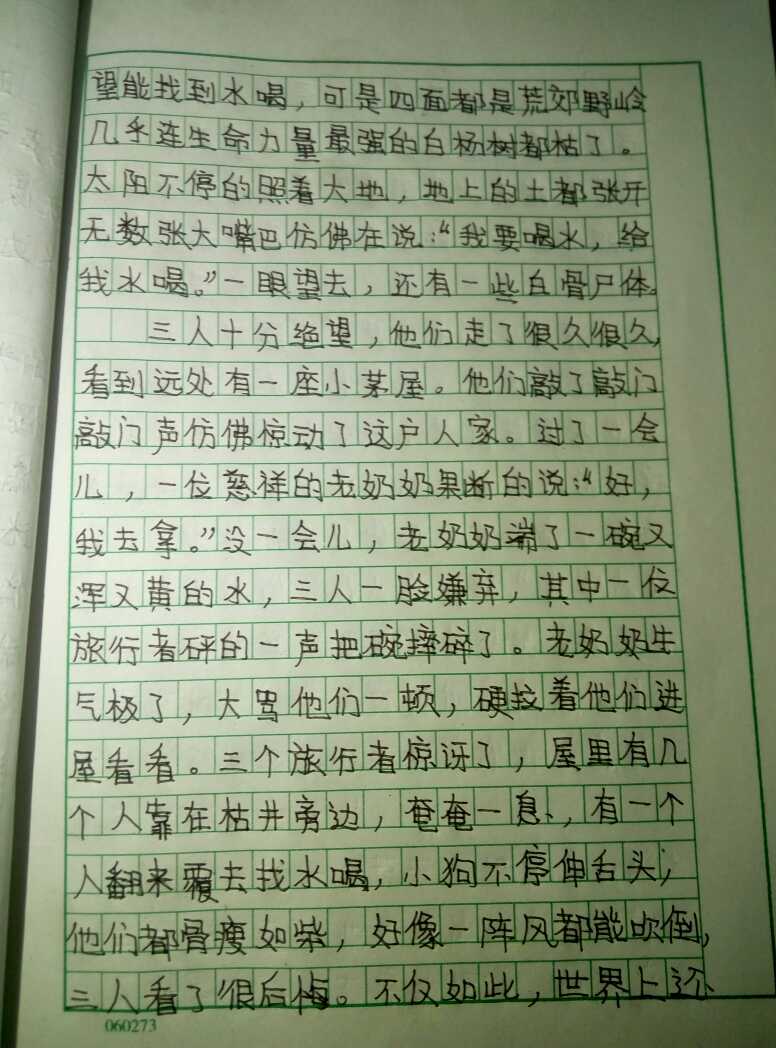 望能找到水喝，可是四面都是荒郊野岭
几乎连生命力量最强的白杨树都枯了。
太阳不停的照着大地，地上的土都张开
无数张大嘴巴仿佛在说：“我要喝水，给
我水喝。”一眼望去，还有一些白骨尸体。
三人十分绝望，他们走了很久很久，
看到远处有一座小茅屋。他们敲了敲门
敲门声仿佛惊动了这户人家。过了一会
儿，一位慈祥的老奶奶果断的说：“好，
我去拿。”没一会儿，老奶奶端了一碗又
浑又黄的水，三人一脸嫌弃，其中一位
旅行者砰的一声把碗摔碎了。老奶奶生
气极了，大骂他们一顿，硬拉着他们进
屋看看。三个旅行者惊讶了，屋里有几
个人靠在枯井旁边，奄奄一息、，有一个
人翻来覆去找水喝，小狗不停伸舌头，
他们都骨瘦如柴，好像一阵风都能吹倒，
三人看了很后悔。不仅如此，世界上还
060273